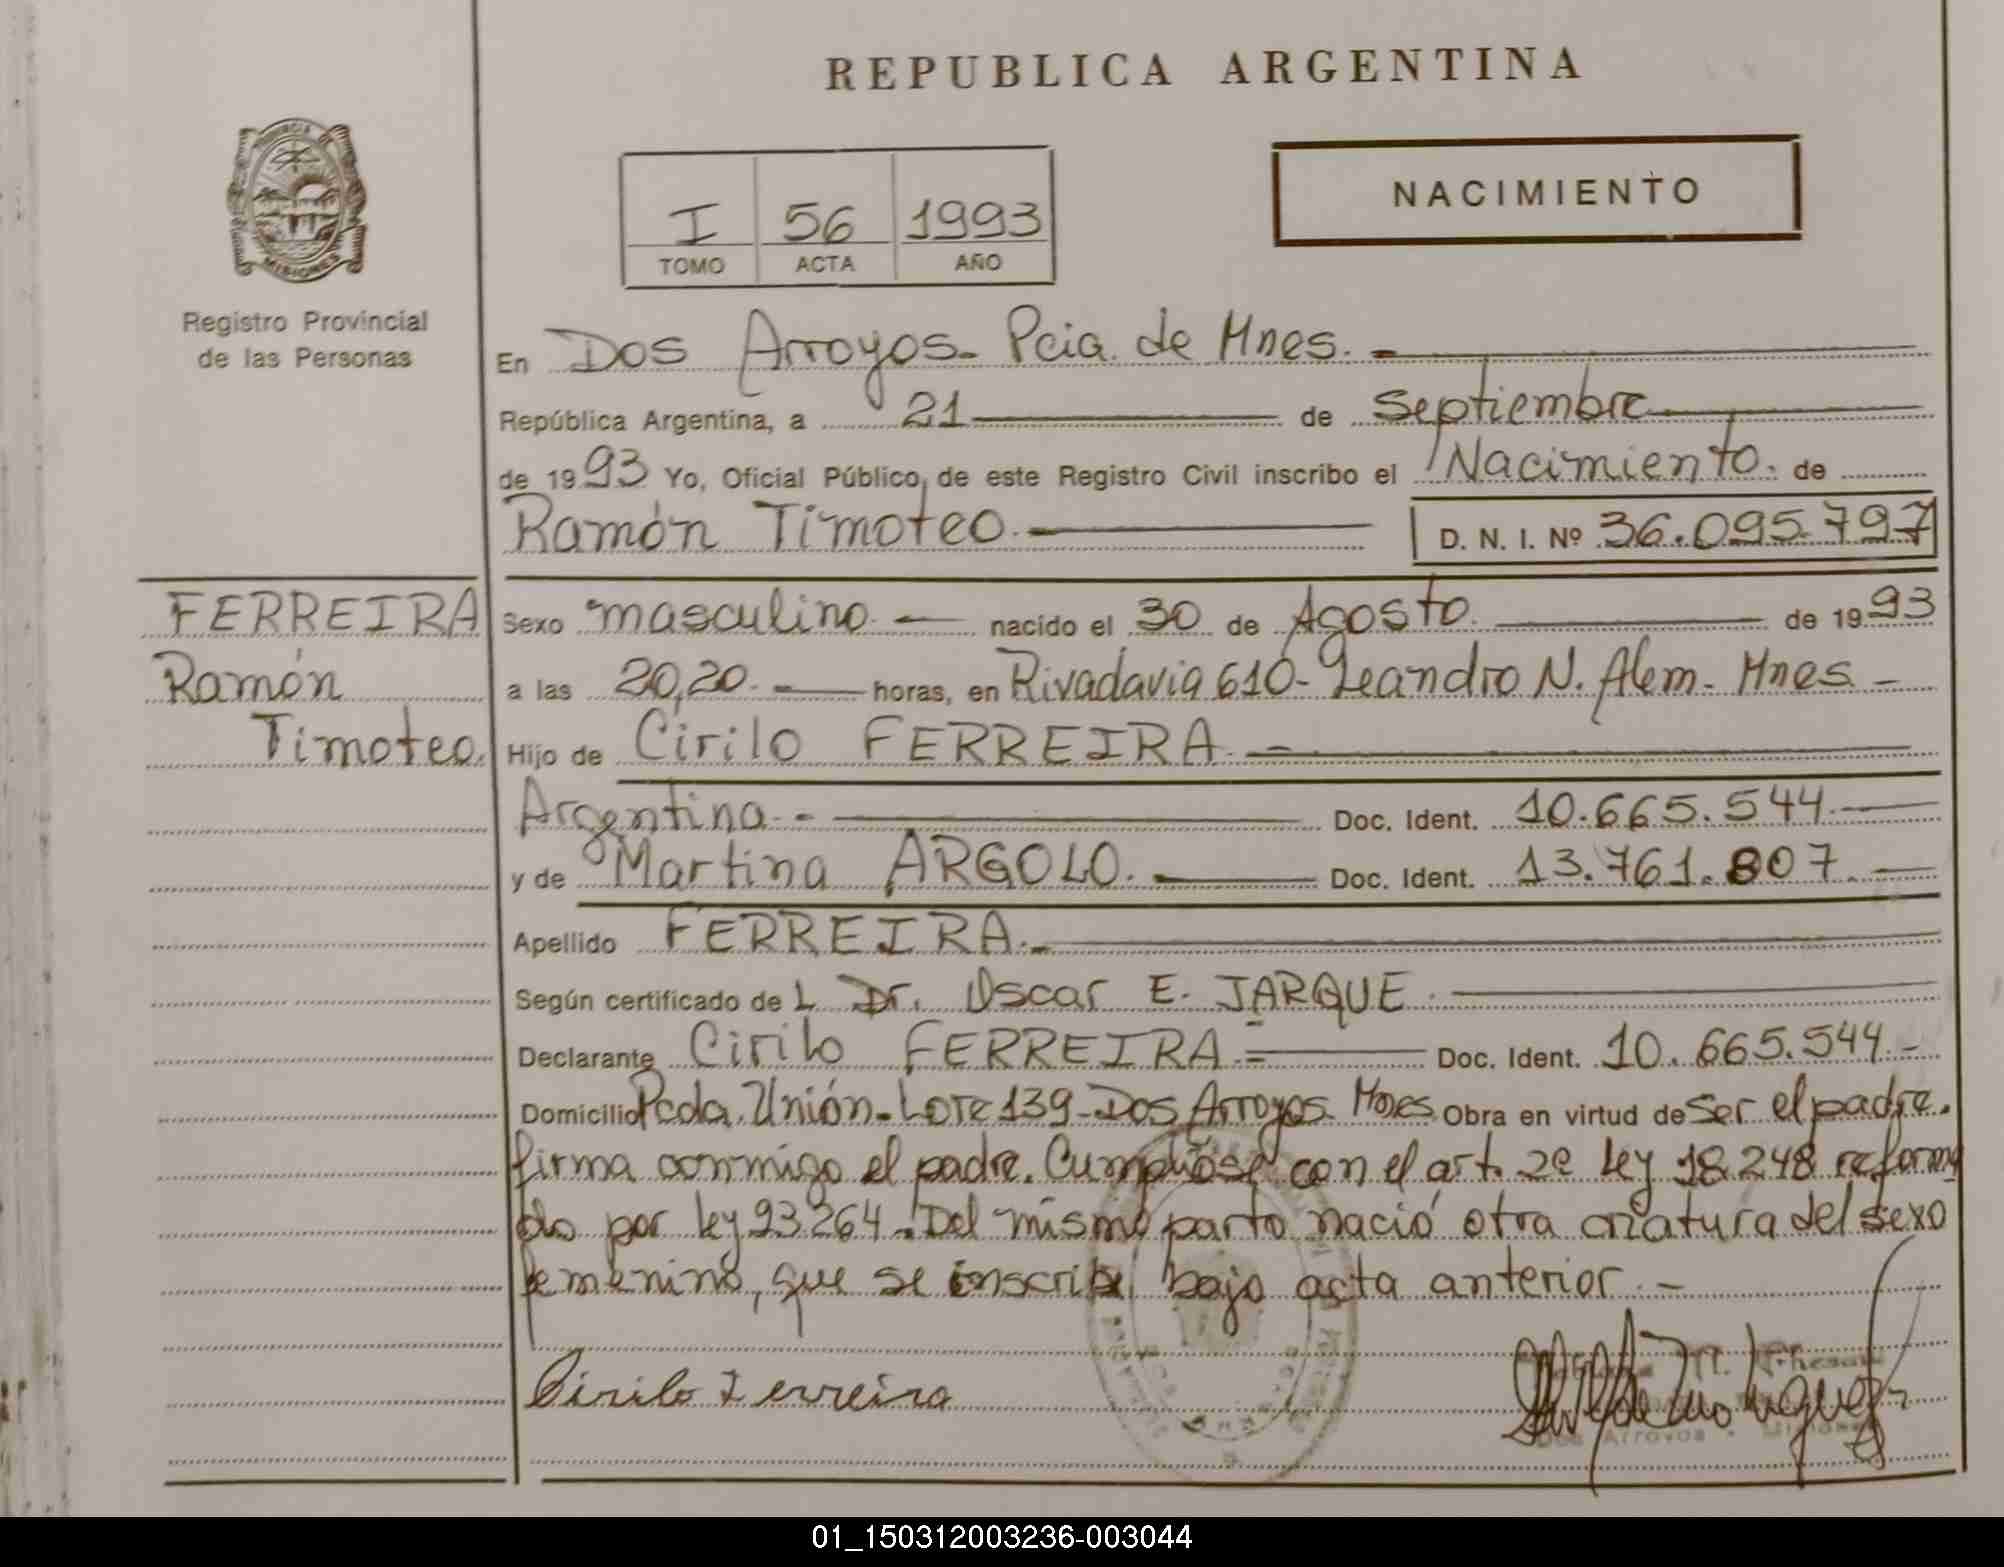 REPUBLICA ARGENTINA
PROVINCIA DE
MISIONES
Registro Provincial
de las Personas
I 56 1993
TOMO ACTA AÑO
NACIMIENTO
En Dos Arroyos- Pcia. de Mnes.-
República Argentina, a 21 de Septiembre
de 1993 Yo, Oficial Público, de este Registro Civil inscribo el Nacimiento. de
Ramón Timoteo.- D. N. I. Nº 36.095.797
FERREIRA
Ramón
Timoteo.
Sexo masculino.- nacido el 30 de Agosto. de 1993
a las 20,20.- horas, en Rivadavia 610- Leandro N. Alem- Mnes.-
Hijo de Cirilo FERREIRA.-
Argentina.- Doc. Ident. 10.665.544.-
y de Martina ARGOLO.- Doc. Ident. 13.761.807.-
Apellido FERREIRA.-
Según certificado de L Dr. Oscar E. JARQUE.
Declarante Cirilo FERREIRA.= Doc. Ident. 10.665.544.-
Domicilio Pcda. Unión-Lote 139-Dos Arroyos- Mnes. Obra en virtud de ser el padre.
firma conmigo el padre. Cumpliose con el art. 2º ley 18.248 reforma
do por ley 23.264. Del mismo parto nació otra criatura del sexo
femenino, que se inscribe bajo acta anterior.-
Cirilo Ferreira
Dos Arroyos - Misiones
01_150312003236-003044